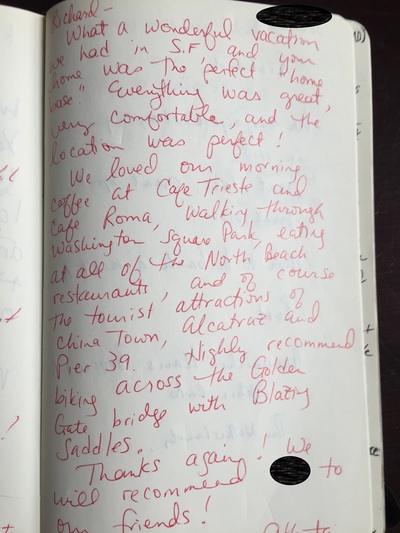 Richard -
What a wonderful vacation
we had in S.F, and your
home was the perfect "home
base." Everything was great,
very comfortable, and the
location was perfect!
We loved our morning
coffee at Cafe Trieste and
Cafe Roma, walking through
Washington Square Park, eating
at all of the North Beach
restaurants, and of course
the tourist attractions of
China Town, Alcatraz and
Pier 39. Highly recommend
biking across the Golden
Gate bridge with Blazing
Saddles.
Thanks again! We
will recommend to
our friends!